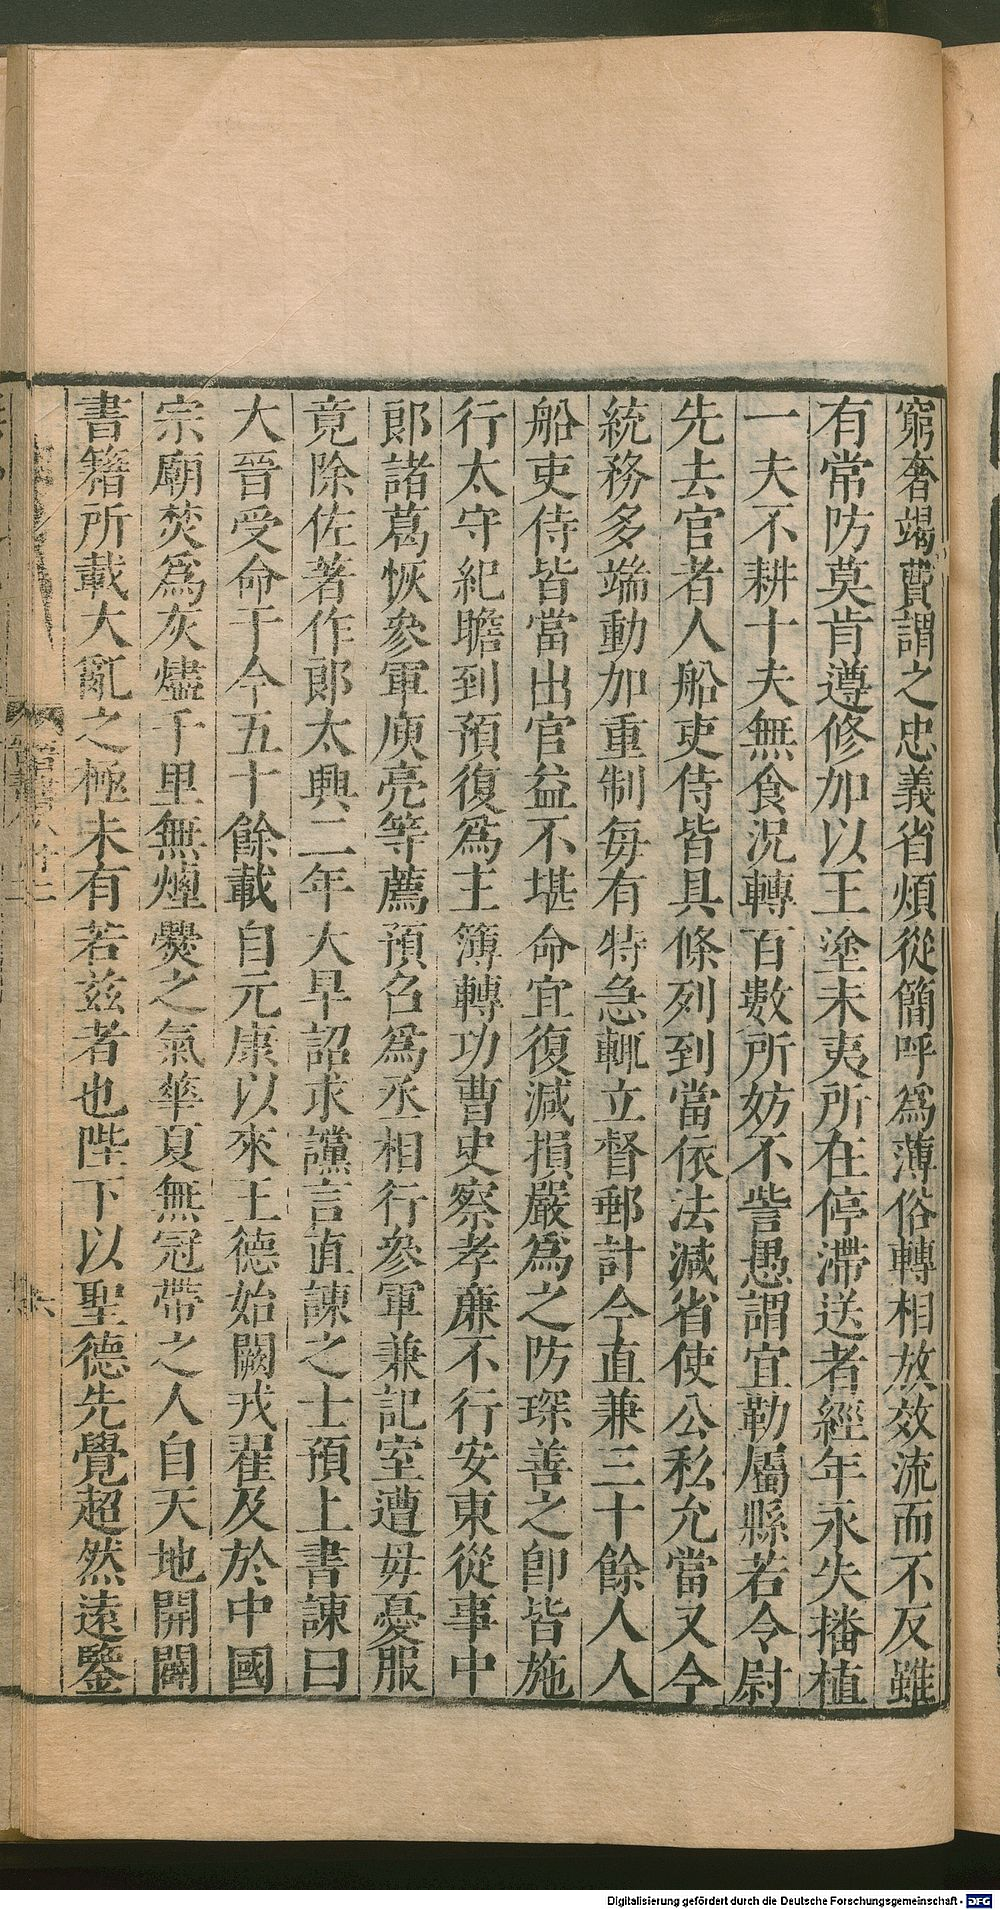 窮奢竭費謂之忠義省煩從簡呼爲薄俗轉相放效流而不反雖
有常防莫肯遵修加以王塗未夷所在停滯送者經年永失播植
一夫不耕十夫無食況轉百數所妨不訾愚謂宜勒屬縣若令尉
先去官者人船吏侍皆具條列到當依法減省使公私允當又今
統務多端動加重制每有特急輒立督郵計今直兼三十餘人人
船吏侍皆當出官益不堪命宜復減損嚴爲之防琛善之卽皆施
行太守紀瞻到預復爲主簿轉功曹史察孝廉不行安東從事中
郎諸葛恢參軍庾亮等薦預召爲丞相行參軍兼記室遭毋憂服
竟除佐著作郎太興二年大旱詔求讜言直諫之士預上書諫曰
大晉受命于今五十餘載自元康以來王德始闕戎翟及於中國
宗廟焚爲灰燼千里無煙爨之氣華夏無冠帶之人自天地開闢
書籍所載大亂之極未有若兹者也陛下以聖德先覺超然遠鑒
Digitalisierung gefördert durch die Deutsche Forschungsgemeinschaft - DFG